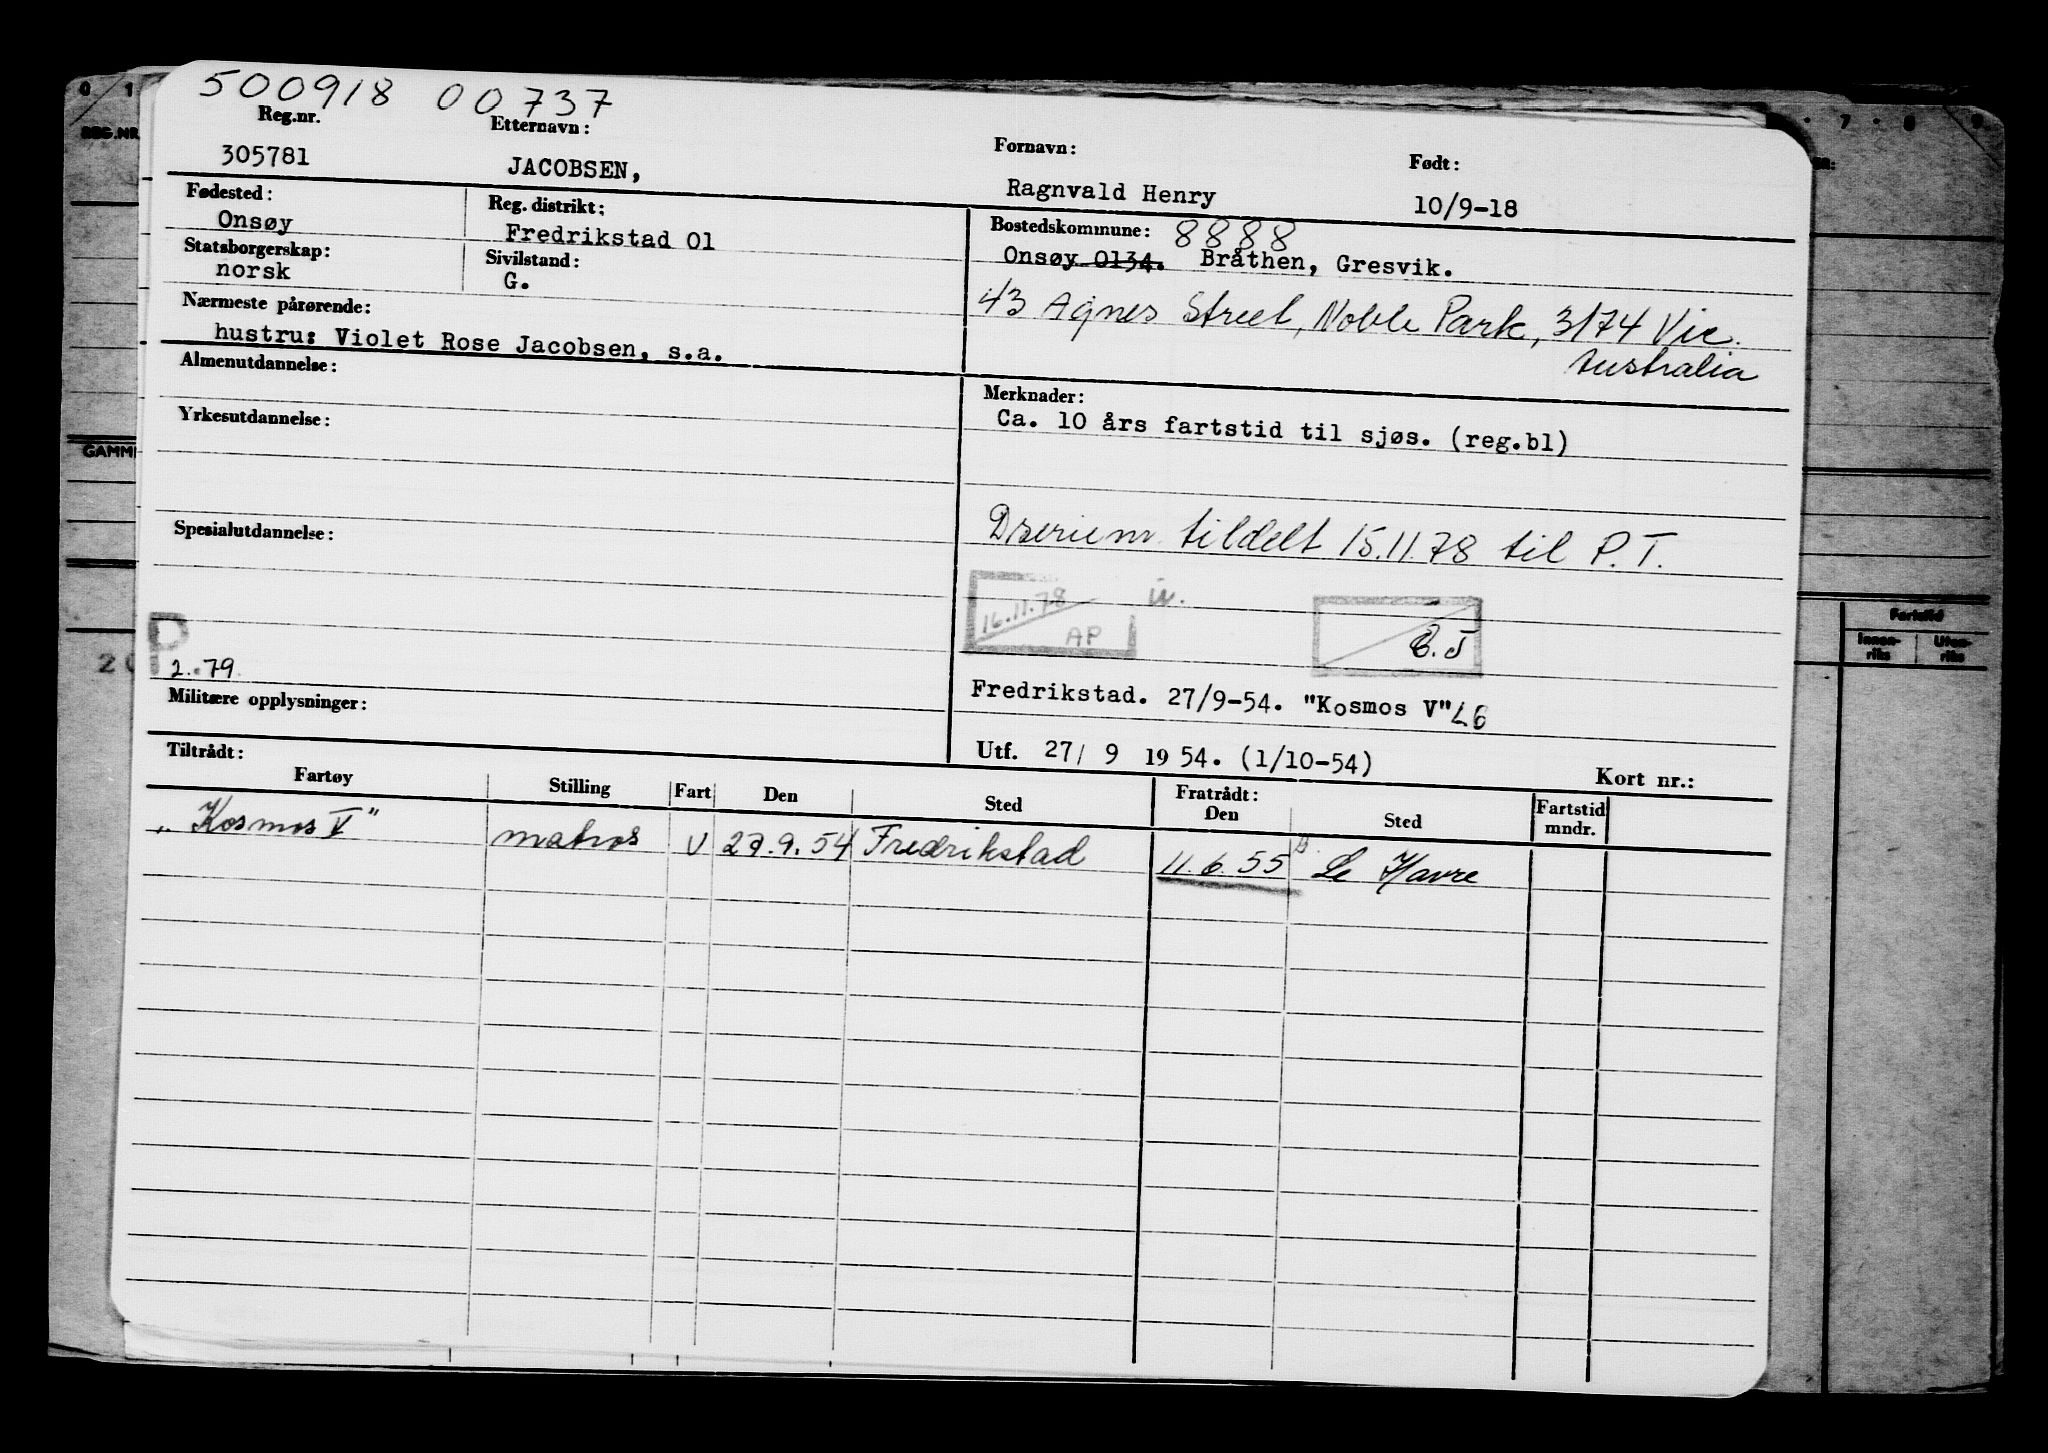 500918 00737
Reg.nr. Etternavn: Fornavn: Født:
305781 JACOBSEN, Ragnvald Henry 10/9-18
Fødested: Reg. distrikt: Bostedskommune: 8888
Onsøy Fredrikstad 01 Onsøy 0134. Bråthen, Gresvik.
Statsborgerskap: Sivilstand:
norsk G.
43 Agnes Street, Noble Park, 3174 Vic.
Australia
Nærmeste pårørende:
hustru: Violet Rose Jacobsen, s.a.
Almenutdannelse: Merknader:
Ca. 10 års fartstid til sjøs. (reg.bl)
Yrkesutdannelse:
Spesialutdannelse:
tildelt 15.11.78 til P.T.
16.11.78
AP
P
2.79.
Fredrikstad. 27/9-54. "Kosmos V" L6
Militære opplysninger:
Utf. 27/ 9 19 54. (1/10-54) Kort nr.:
Tiltrådt: Fratrådt:
Fartøy Stilling Fart Den Sted Den Sted Fartstid mndr.
"Kosmos V" matros V 27.9.54 Fredrikstad 11.6.55 Le Havre
0 1 7 8 9
REG.NR
GAMM
20
Fartstid
Innen- Uten-
riks riks